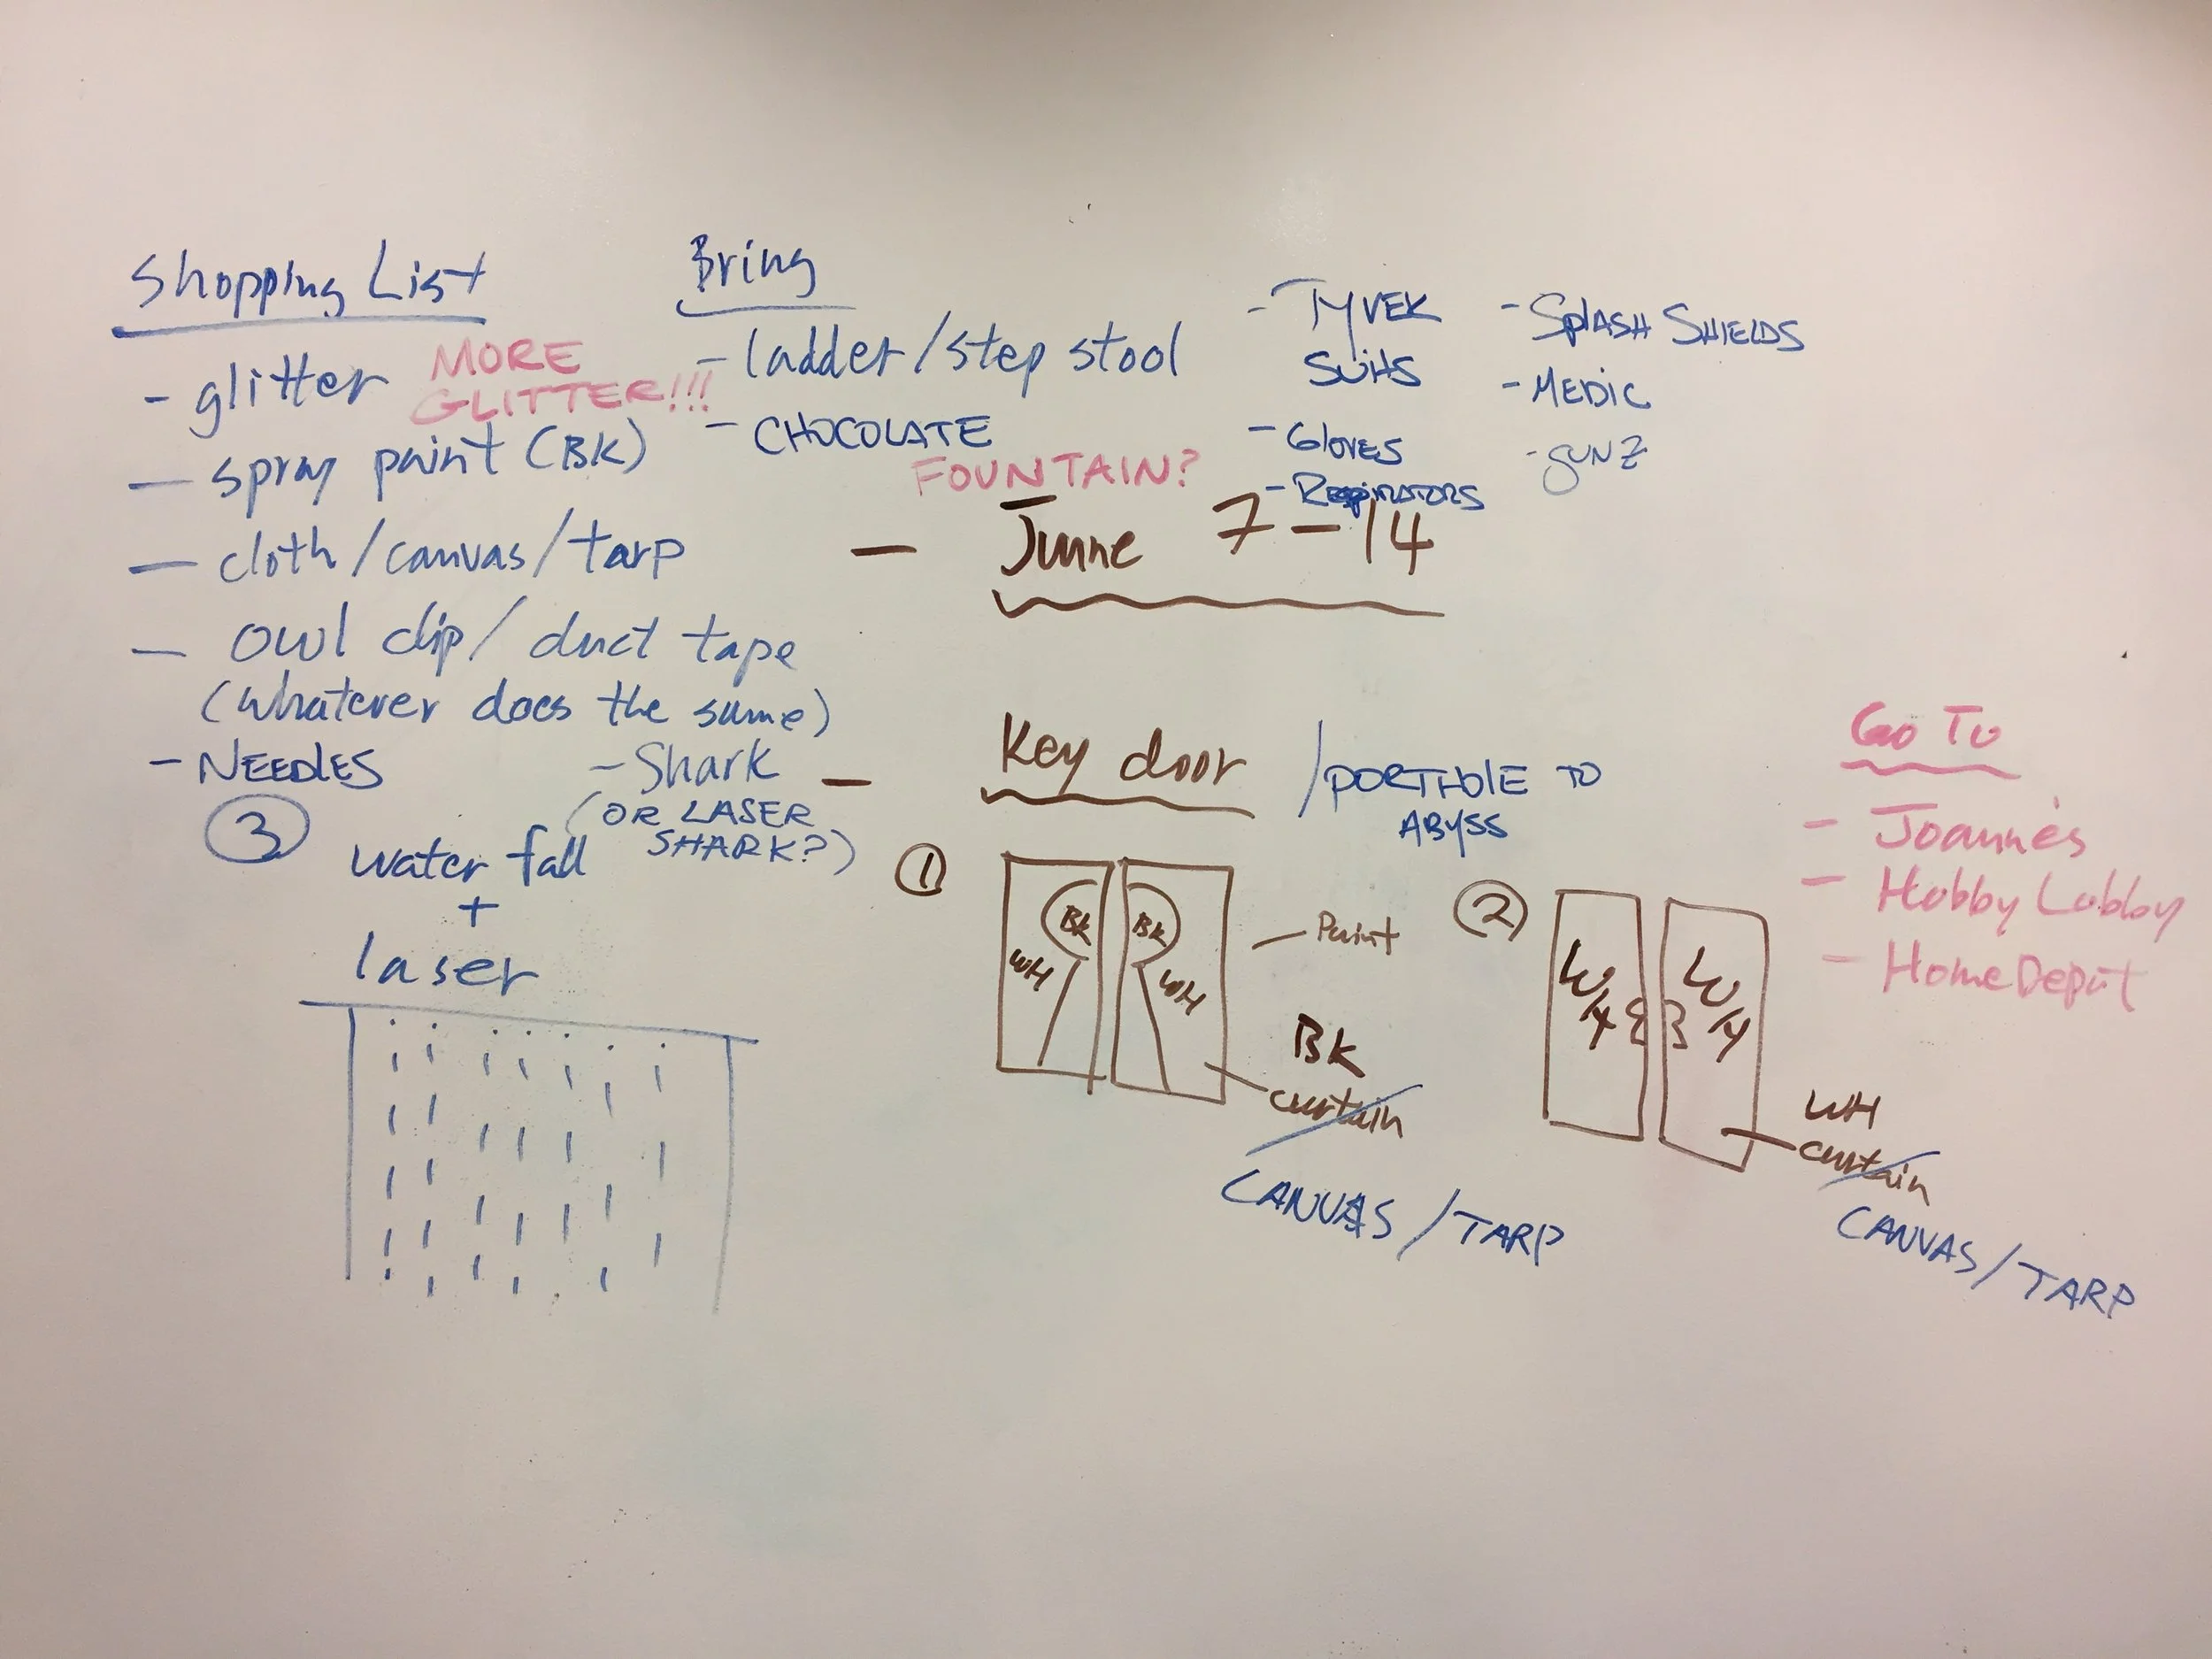 Shopping List
- glitter
MORE
GLITTER!!!
- spray paint (BK)
- cloth/canvas/tarp
- owl clip/duct tape
(whatever does the same)
- NEEDLES
- Shark
(OR LASER
SHARK?)
Bring
- ladder/step stool
- CHOCOLATE
FOUNTAIN?
- TYVEK
SUITS
- GLOVES
- RESPIRATORS
- SPLASH SHIELDS
- MEDIC
- GUNZ
- June 7-14
- Key door /PORTHOLE TO
ABYSS
①
BK
BK
WH
WH
- Paint
BK
curtain
CANVAS/TARP
②
WH
WH
WH
curtain
CANVAS/TARP
③
water fall
+
laser
Go To
- Joanne's
- Hobby Lobby
- Home Depot